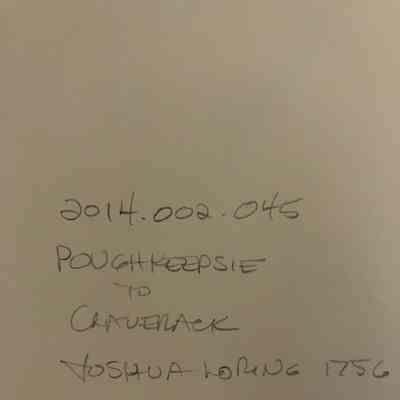 2014.002.045
POUGHKEEPSIE
TO
CLAVERACK
JOSHUA LORING 1756